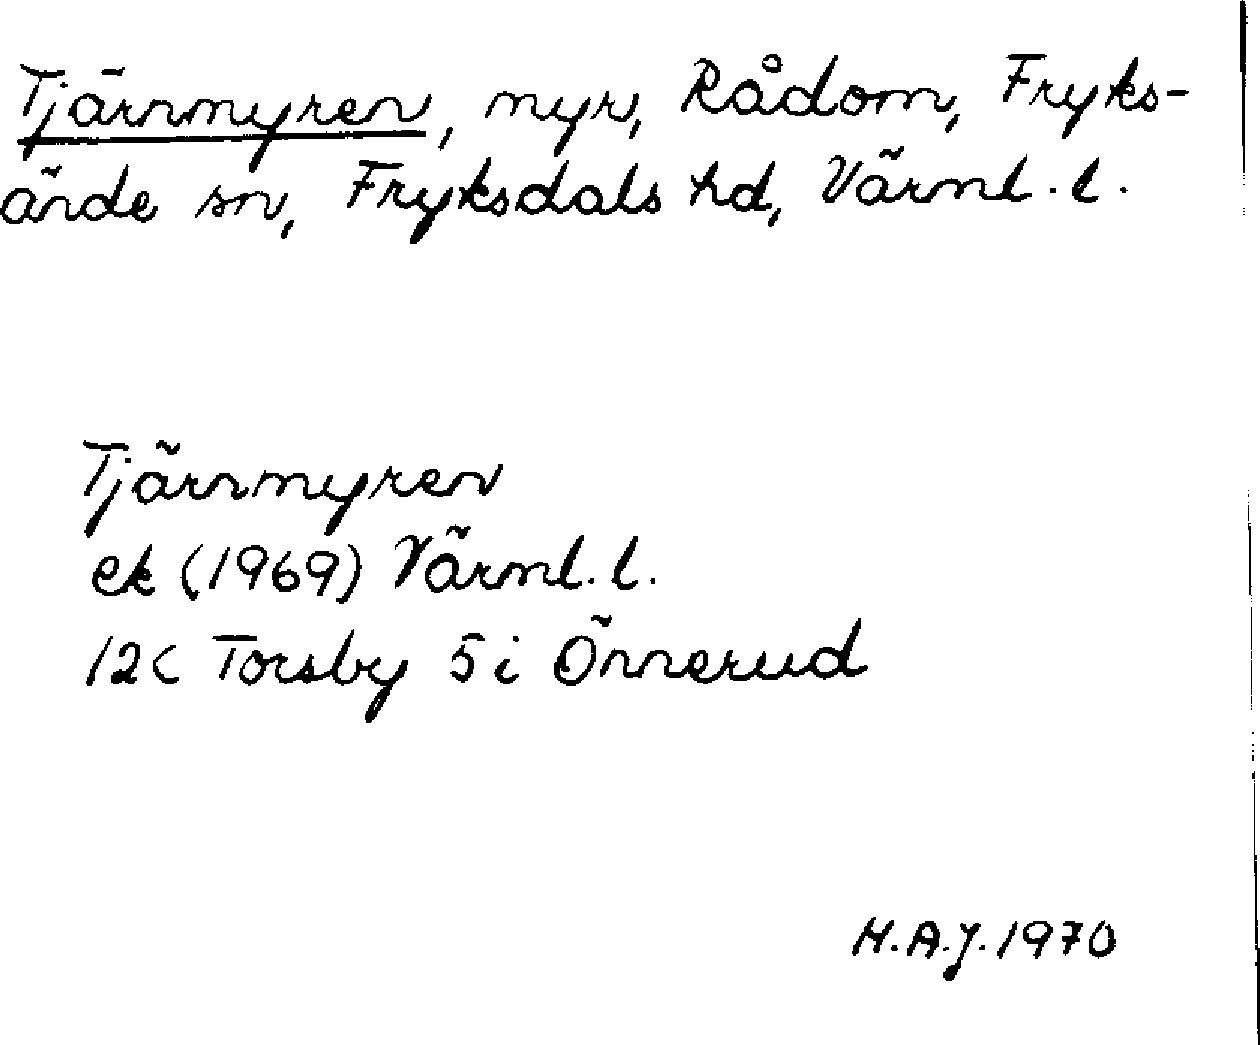 Tjärnmyren, myr, Rådom, Fryks-
ände sn, Fryksdals hd, Värml. l.
Tjärnmyren
ek (1969) Värml. l.
12C Torsby 5i Önnerud
H.A.J. 1970